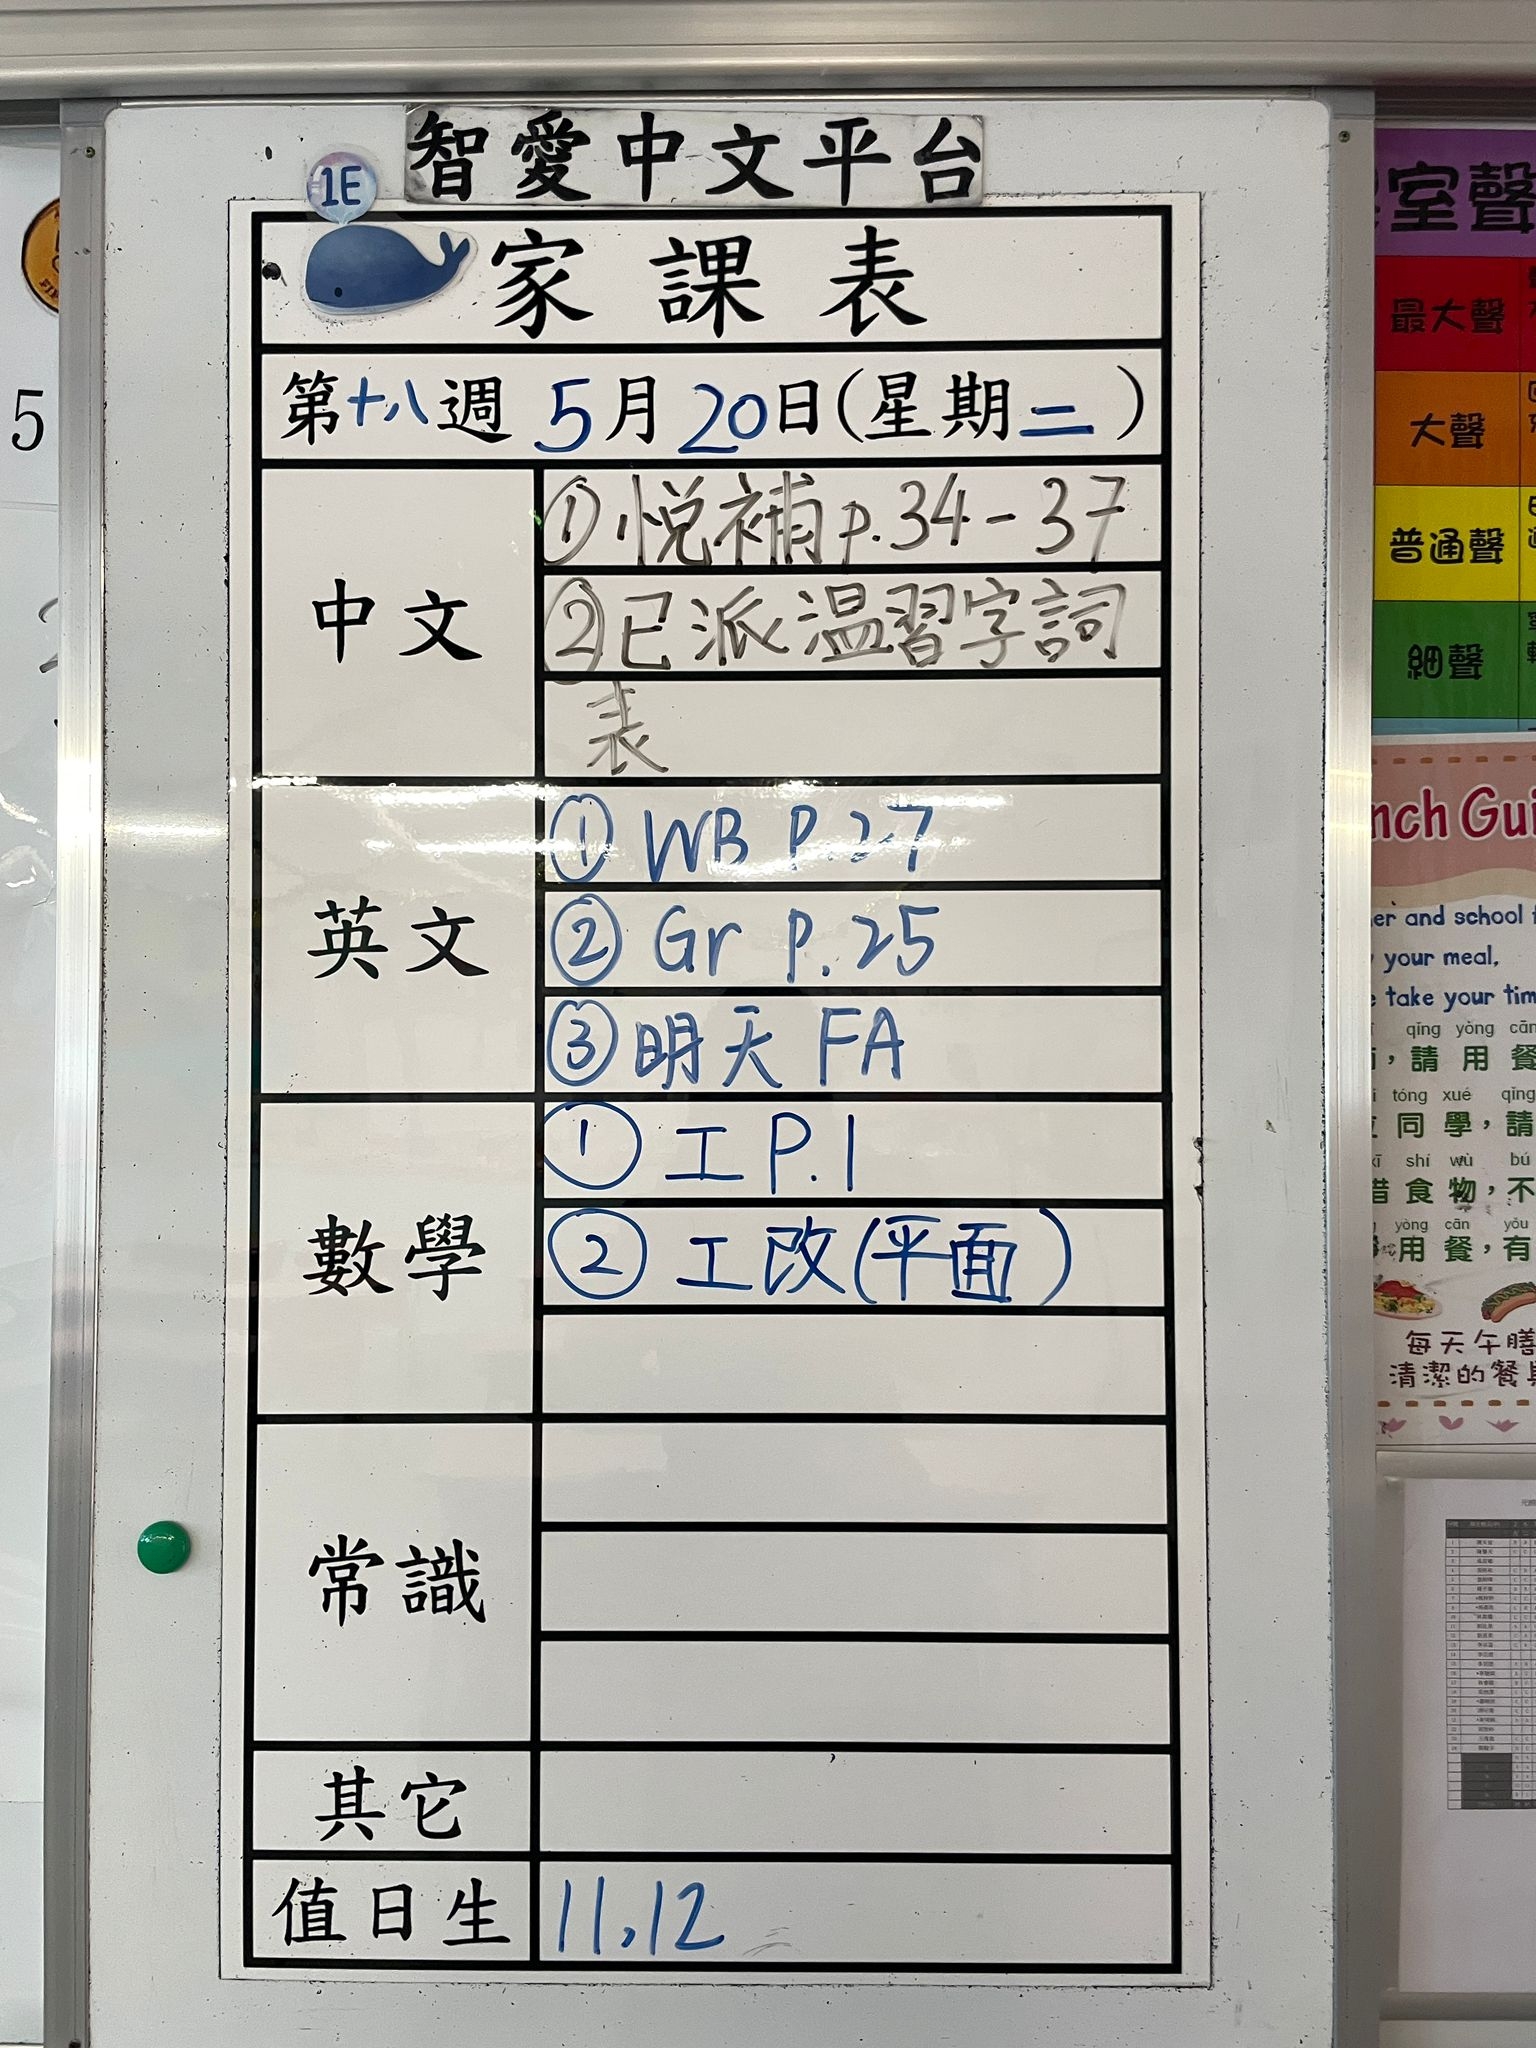 智愛中文平台
1E
家課表
第十八週 5月20日(星期二)
中文
①悅補p.34-37
②已派溫習字詞
表
英文
① WB P.27
② Gr P.25
③明天 FA
數學
① 工 P.1
② 工改(平面)
常識
其它
值日生
11,12
5
室聲
最大聲
大聲
普通聲
細聲
nch Gui
er and school
your meal,
take your tim
qǐng yòng cān
,請用餐
tóng xué qǐng
同學,請
xī shí wù bú
惜食物,不
yòng cān yǒu
用餐,有
每天午膳
清潔的餐具